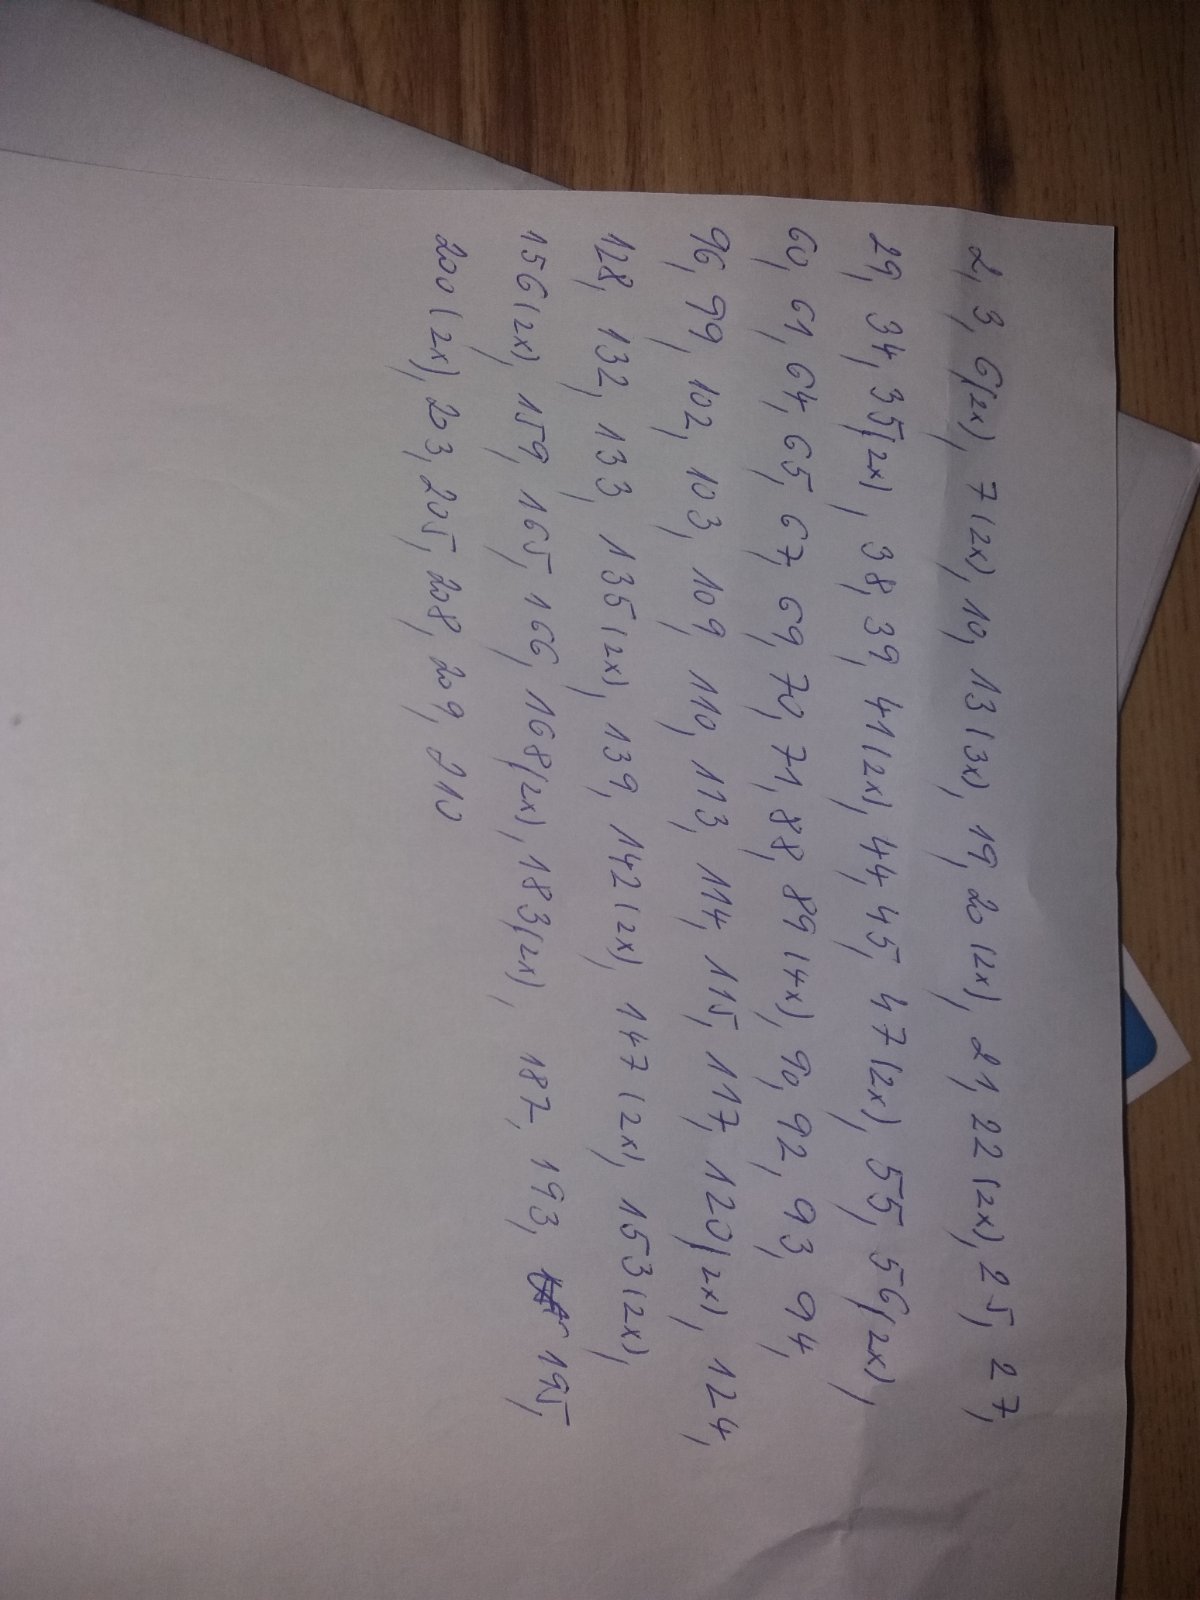 2, 3, 6(2x), 7(2x), 10, 13(3x), 19, 20(2x), 21, 22(2x), 25, 27,
29, 34, 35(2x), 38, 39, 41(2x), 44, 45, 47(2x), 55, 56(2x),
60, 61, 64, 65, 67, 69, 70, 71, 88, 89(4x), 90, 92, 93, 94,
96, 99, 102, 103, 109, 110, 113, 114, 115, 117, 120(2x), 124,
128, 132, 133, 135(2x), 139, 142(2x), 147(2x), 153(2x),
156(2x), 159, 165, 166, 168(2x), 183(2x), 187, 193, 195,
200(2x), 203, 205, 208, 209, 210